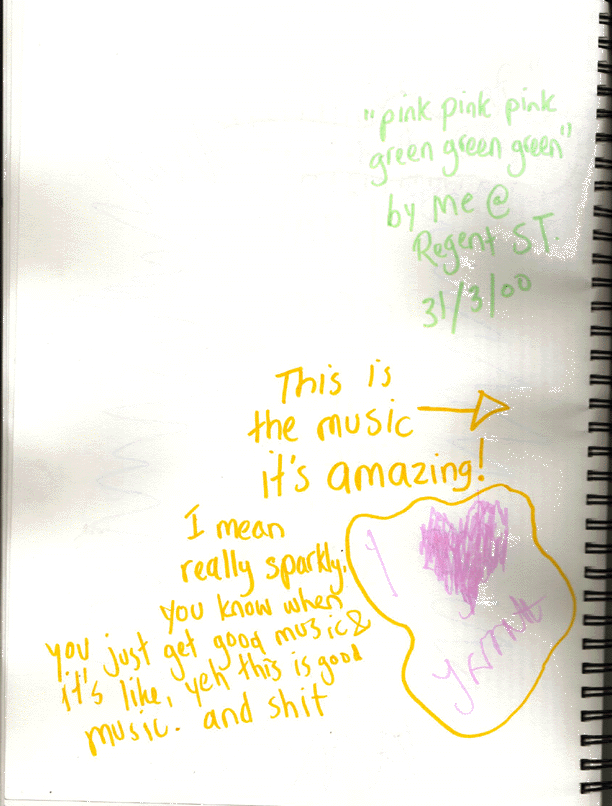 "pink pink pink
green green green"
by me @
Regent ST.
31/3/00
This is
the music
it's amazing!
I mean
really sparkly.
you know when
you just get good music &
it's like, yeh this is good
music. and shit
I